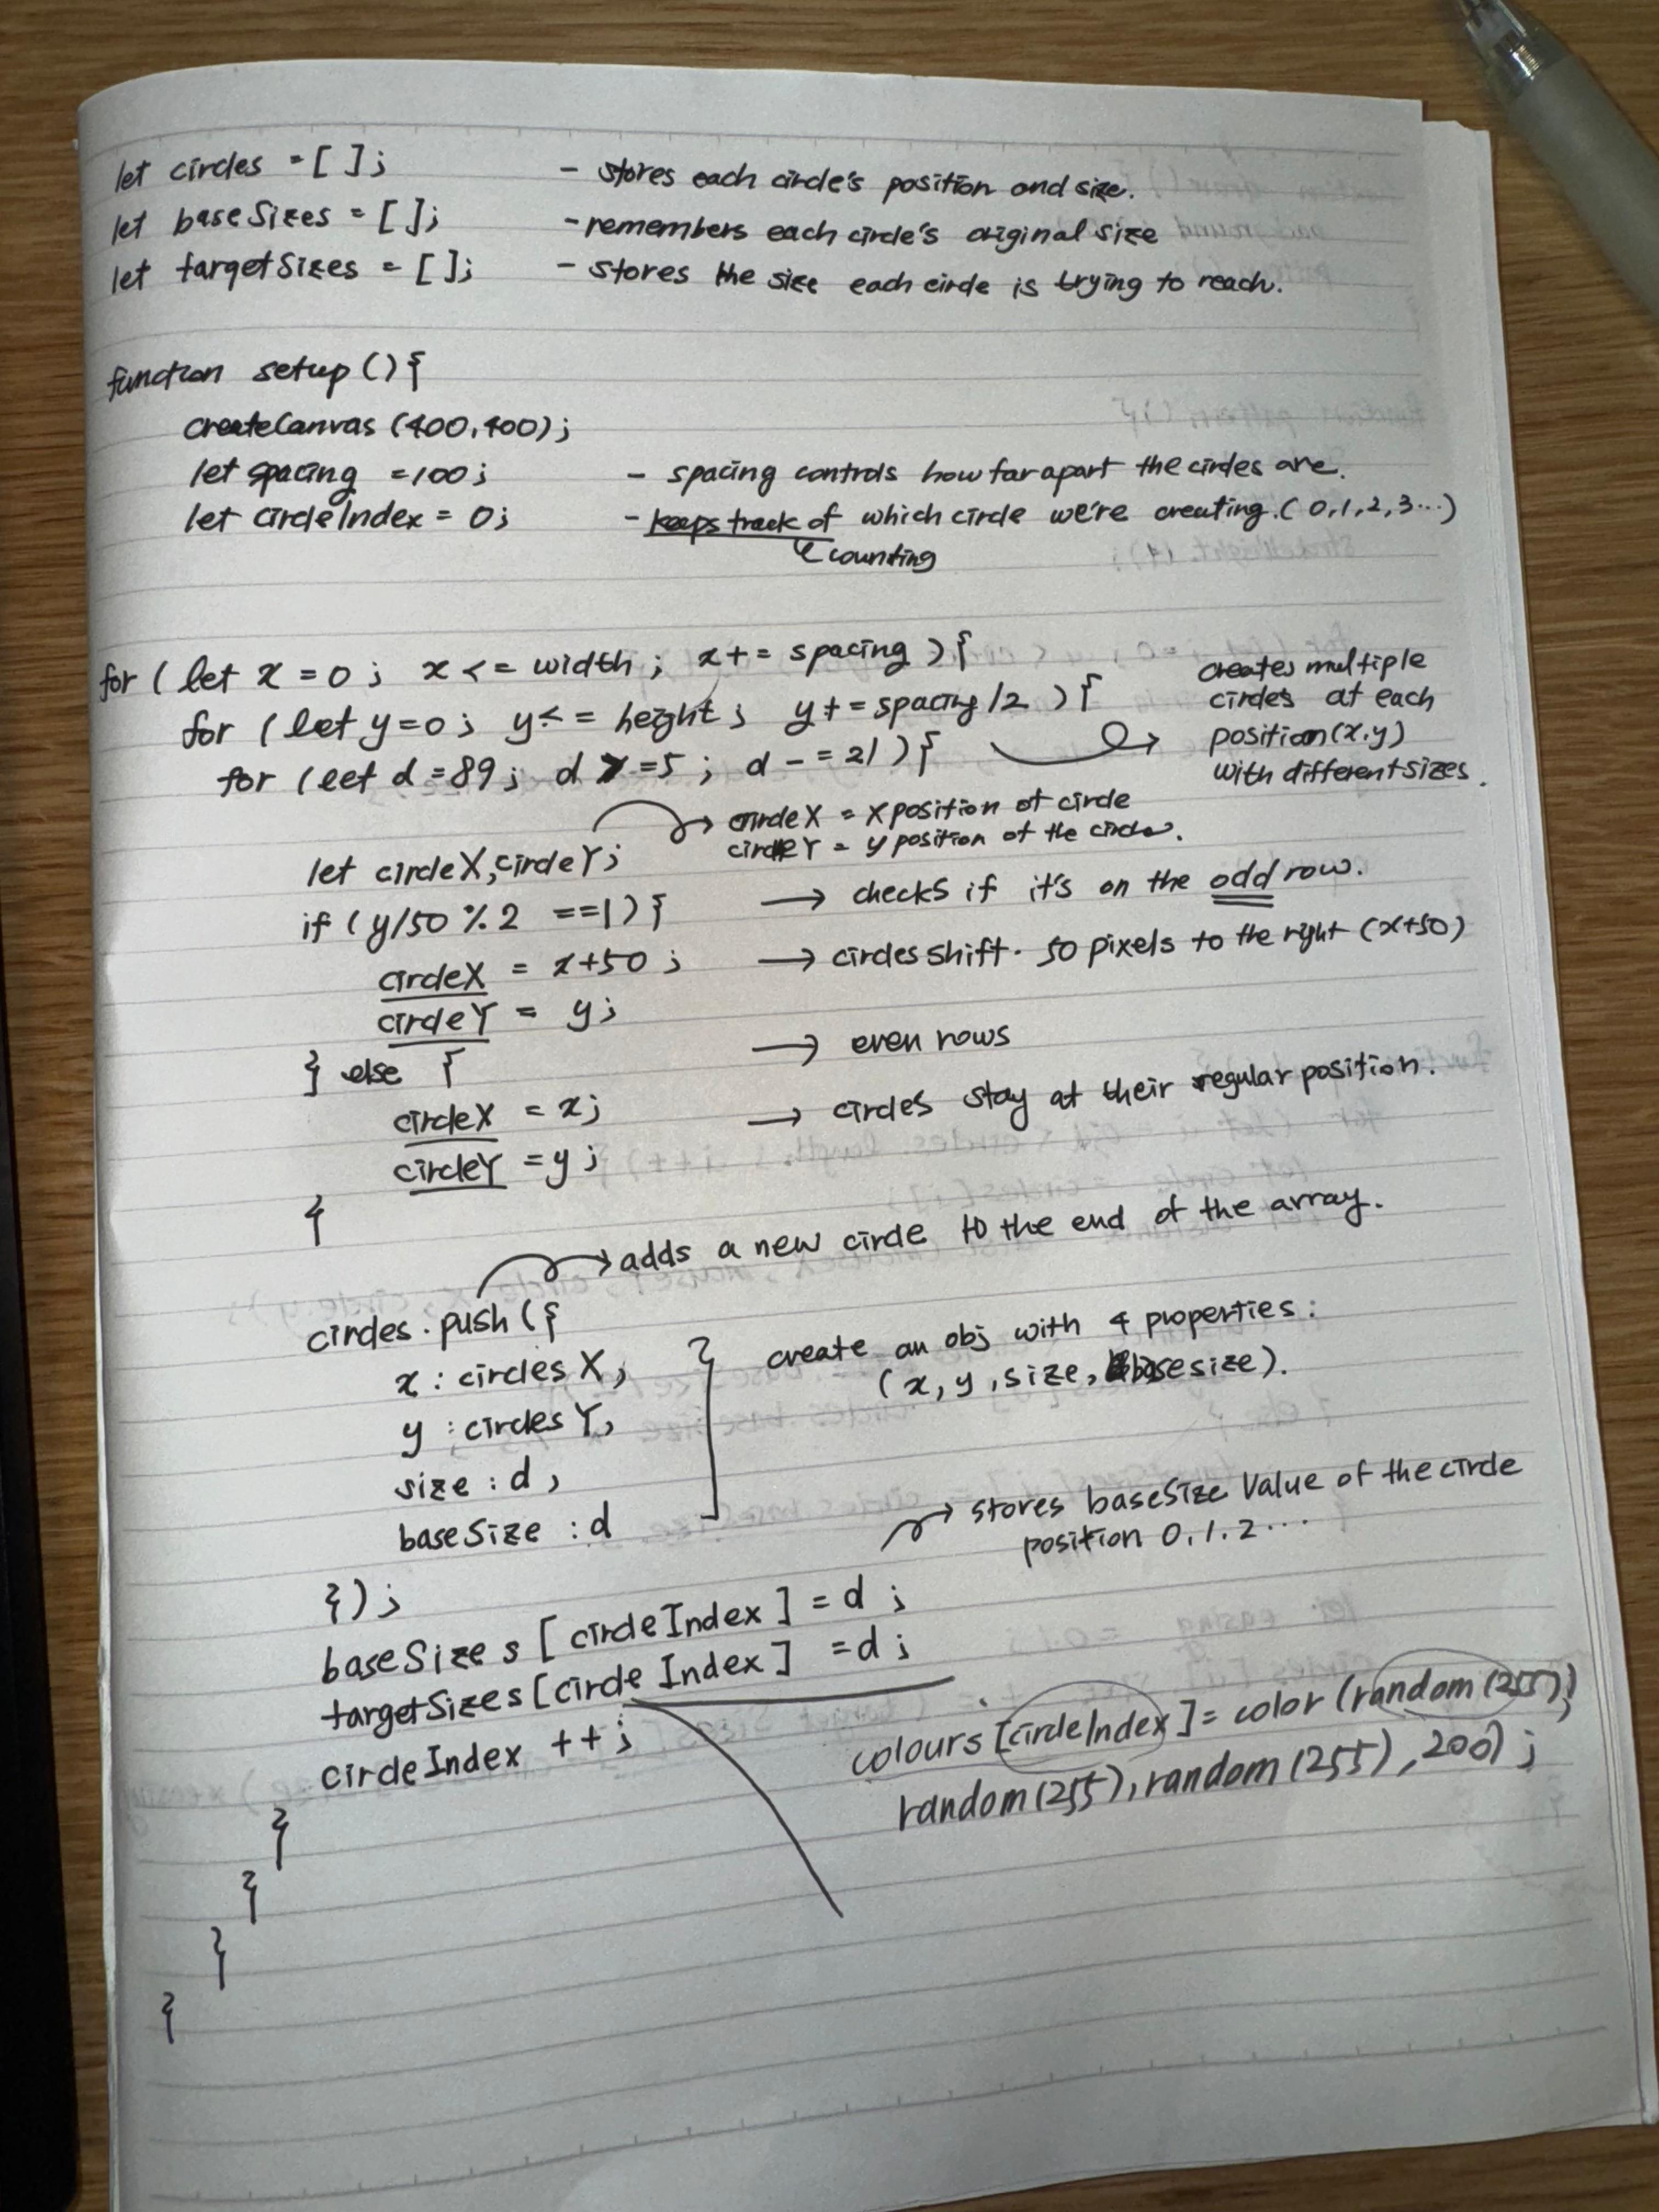 let circles = [ ];      - stores each circle's position and size.
let baseSizes = [ ];      - remembers each circle's original size
let targetSizes = [ ];      - stores the size each circle is trying to reach.
function setup () {
createCanvas (400,400);
let spacing = 100;      - spacing controls how far apart the circles are.
let circleIndex = 0;      - keeps track of which circle we're creating. ( 0,1,2,3...)
counting
for ( let x = 0 ; x <= width ; x += spacing ) {
for ( let y=0 ; y <= height ; y += spacing /2 ) {
for ( let d = 89 ; d >=5 ; d -= 21 ) {
creates multiple
circles at each
position (x,y)
with different sizes.
circleX = X position of circle
circleY = y position of the circle.
let circleX,circleY;
if ( y/50 % 2 ==1 ) {      → checks if it's on the odd row.
circleX = x+50 ;      → circles shift. 50 pixels to the right (x+50)
circleY = y ;
} else {      → even rows
circleX = x;      → circles stay at their regular position.
circleY = y ;
{
→ adds a new circle to the end of the array.
circles.push ({
x : circles X,
y : circles Y,
size : d ,
baseSize : d
create an obj with 4 properties :
(x, y, size, basesize).
→ stores baseSize Value of the circle
position 0,1.2...
});
baseSizes [ circleIndex ] = d ;
targetSizes [circle Index ] = d ;
circleIndex ++ ;
colours [circleIndex ] = color (random (255),
random (255), random (255) , 200) ;
}
}
}
{